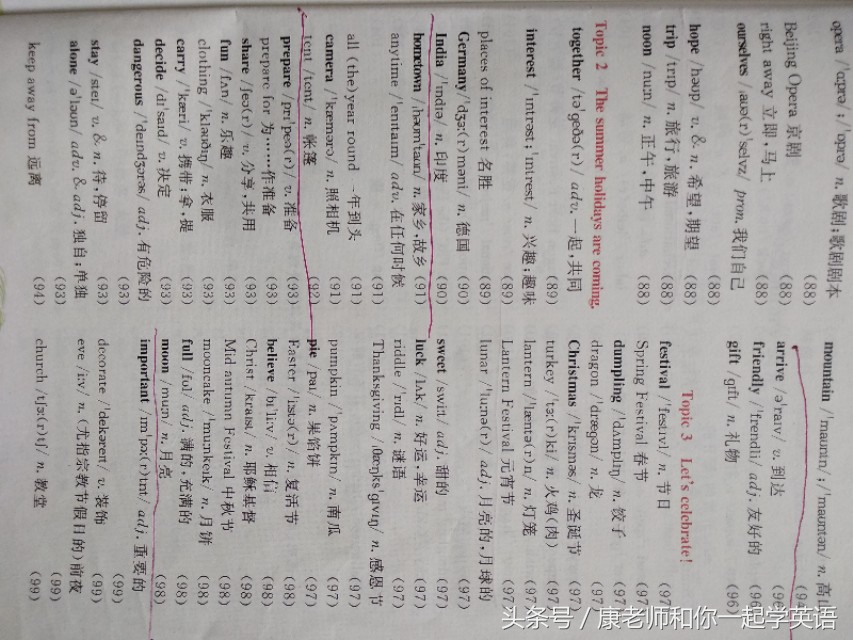 opera /'ɒprə/ ; /'ɑprə/ n. 歌剧;歌剧剧本
(88)
Beijing Opera 京剧 (88)
right away 立即,马上 (88)
ourselves /aʊə(r)'selvz/ pron. 我们自己
(88)
hope /həʊp/ v. & n. 希望,期望 (88)
trip /trɪp/ n. 旅行,旅游 (88)
noon /nuːn/ n. 正午,中午 (88)
Topic 2 The summer holidays are coming.
together /tə'geðə(r)/ adv. 一起,共同
(89)
interest /'ɪntrəst; 'ɪntrest/ n. 兴趣;趣味
(89)
places of interest 名胜 (89)
Germany /'dʒɜː(r)məni/ n. 德国 (90)
India /'ɪndiə/ n. 印度 (90)
hometown /ˌhəʊm'taʊn/ n. 家乡,故乡 (91)
anytime /'enitaɪm/ adv. 在任何时候
(91)
all (the) year round 一年到头 (91)
camera /'kæmərə/ n. 照相机 (91)
tent /tent/ n. 帐篷 (92)
prepare /prɪ'peə(r)/ v. 准备 (93)
prepare for 为……作准备 (93)
share /ʃeə(r)/ v. 分享,共用 (93)
fun /fʌn/ n. 乐趣 (93)
clothing /'kləʊðɪŋ/ n. 衣服 (93)
carry /'kæri/ v. 携带;拿,提 (93)
decide /dɪ'saɪd/ v. 决定 (93)
dangerous /'deɪndʒərəs/ adj. 有危险的
(93)
stay /steɪ/ v. & n. 待,停留 (93)
alone /ə'ləʊn/ adv. & adj. 独自;单独
(93)
keep away from 远离 (94)
mountain /'maʊntɪn/ ; /'maʊntən/ n. 高
arrive /ə'raɪv/ v. 到达
friendly /'frendli/ adj. 友好的
gift /gɪft/ n. 礼物 (96)
Topic 3 Let's celebrate!
festival /'festɪvl/ n. 节日
Spring Festival 春节 (97
dumpling /'dʌmplɪŋ/ n. 饺子 (97
dragon /'drægən/ n. 龙 (97
Christmas /'krɪsməs/ n. 圣诞节 (97
turkey /'tɜː(r)ki/ n. 火鸡(肉) (97
lantern /'læntə(r)n/ n. 灯笼 (97
Lantern Festival 元宵节 (97
lunar /'luːnə(r)/ adj. 月亮的,月球的
(97)
sweet /swiːt/ adj. 甜的 (97)
luck /lʌk/ n. 好运,幸运 (97)
riddle /'rɪdl/ n. 谜语 (97)
Thanksgiving /ˌθæŋks'gɪvɪŋ/ n. 感恩节
(97)
pumpkin /'pʌmpkɪn/ n. 南瓜 (97)
pie /paɪ/ n. 果馅饼 (97)
Easter /'iːstə(r)/ n. 复活节 (98)
believe /bɪ'liːv/ v. 相信 (98)
Christ /kraɪst/ n. 耶稣基督 (98)
Mid-autumn Festival 中秋节 (98)
mooncake /'muːnkeɪk/ n. 月饼 (98)
full /fʊl/ adj. 满的,充满的 (98)
moon /muːn/ n. 月亮 (98)
important /ɪm'pɔː(r)tnt/ adj. 重要的
(99)
decorate /'dekəreɪt/ v. 装饰 (99)
eve /iːv/ n. (尤指宗教节假日的)前夜
(99)
church /tʃɜː(r)tʃ/ n. 教堂 (99)
头条号/康老师和你一起学英语